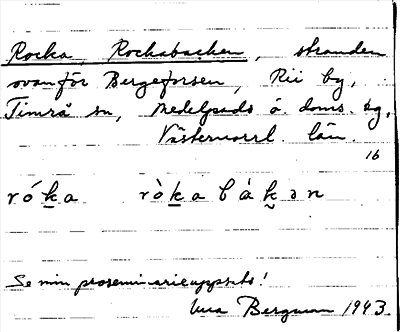 Rocka, Rockabacken, stranden
ovanför Bergeforsen, Rii by,
Timrå sn, Medelpads ö. doms. sg,
Västernorrl. län.
16
róka ròkabàkən
Se min proseminarieuppsats!
Bergman 1943.